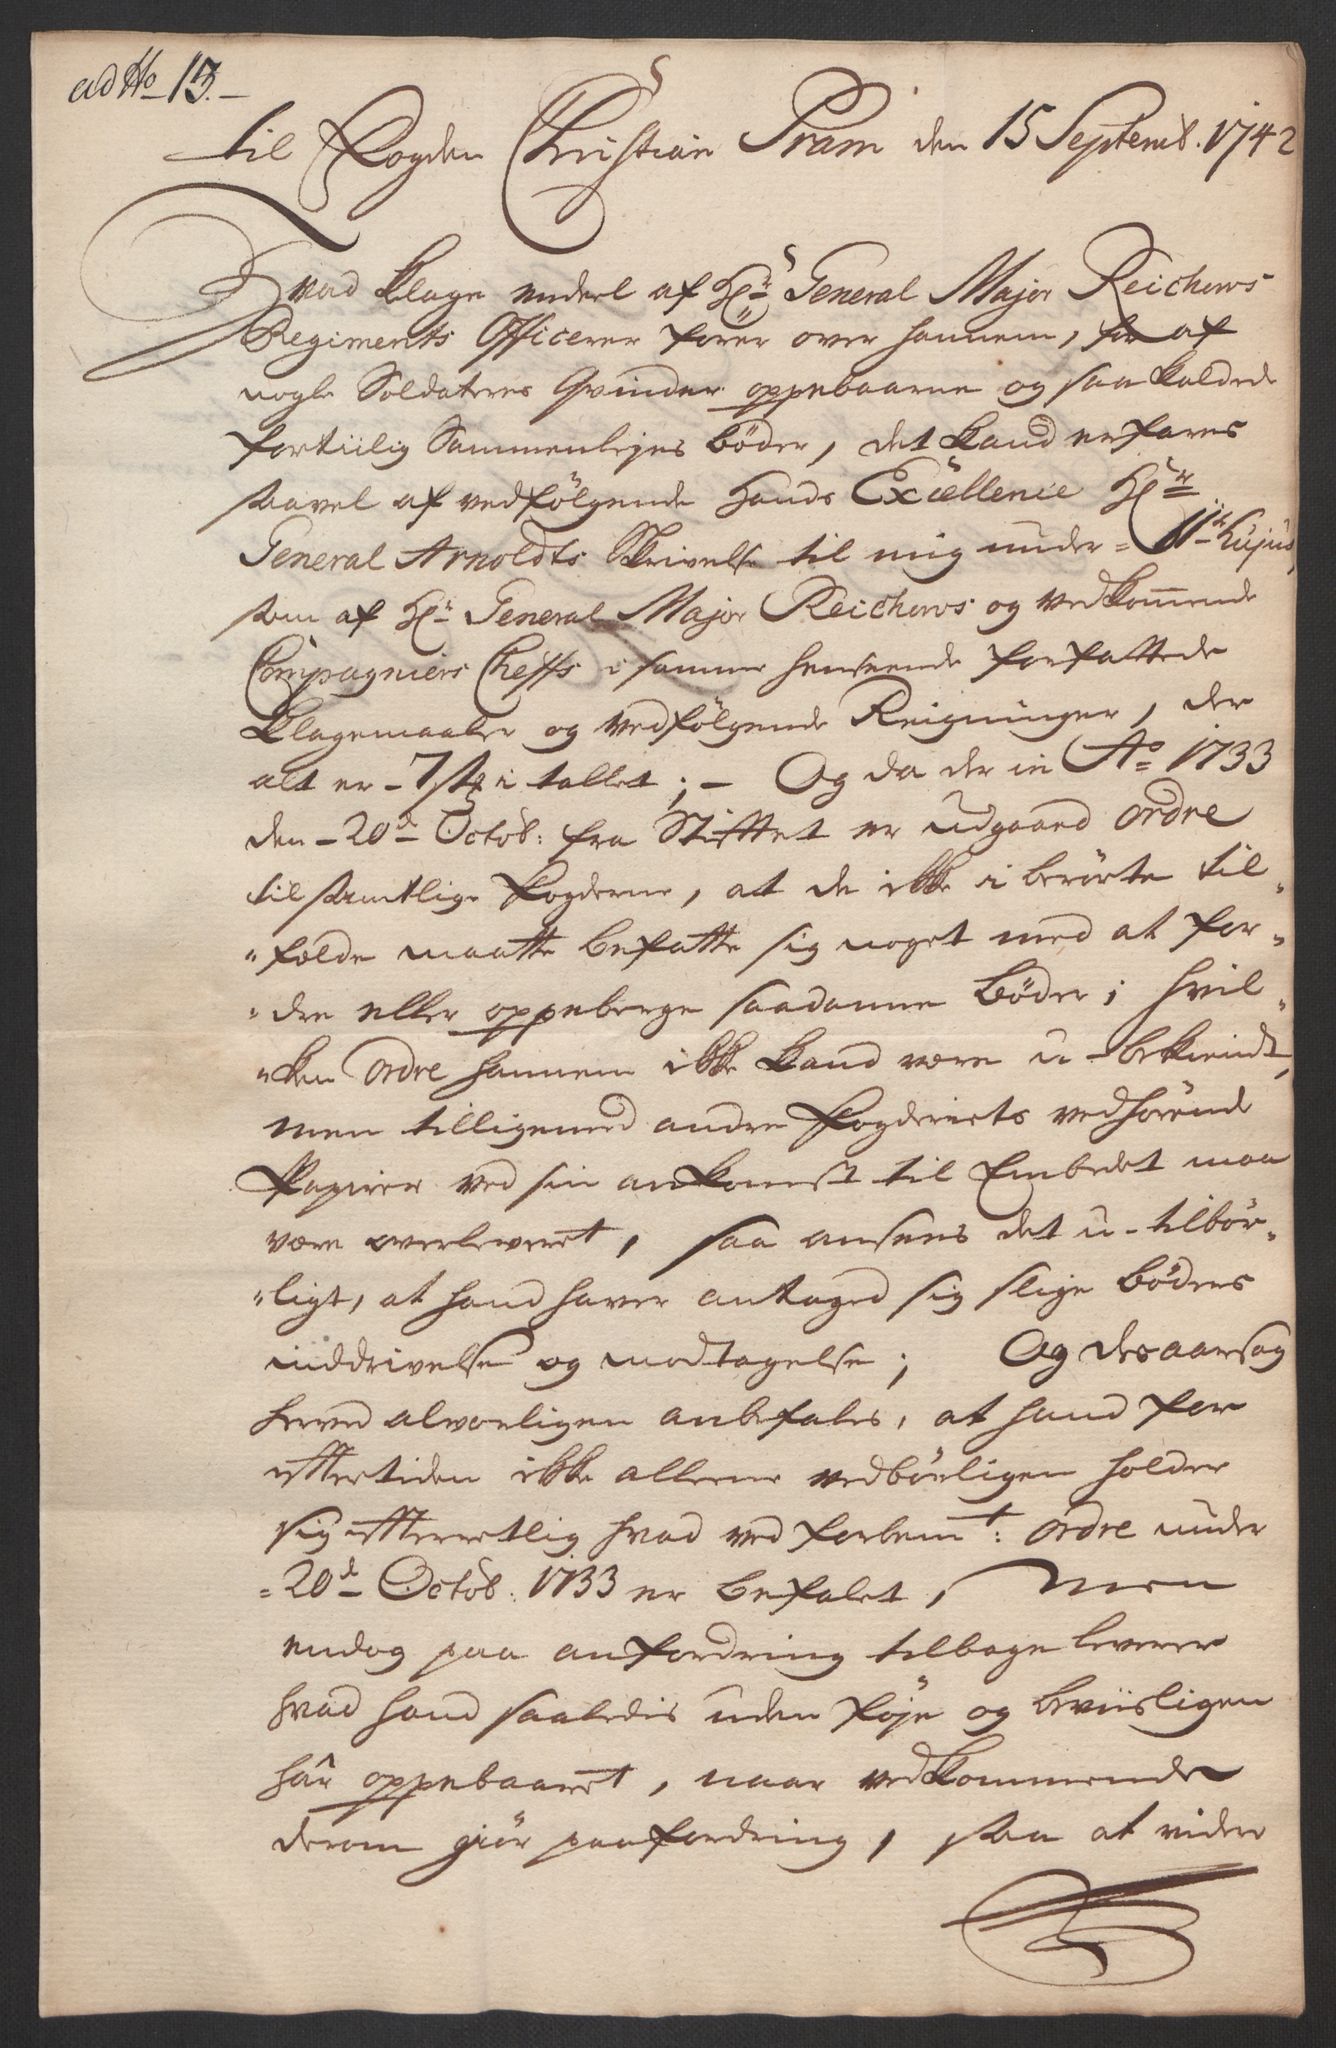 ad No 13.
til Fogden Christian Pram den 15 Septemb. 1742
Hvad Klage endeel af Hr General Major Reichows
Regiments Officerer fører over hannem, for af
nogle Soldateres Qvinder oppebaarne og saa kaldede
fortiilig Sammenlejes bøder, det kand erfares
saavel af vedfølgende Hands Excellence Hr
General Arnoldts Skrivelse til mig under 11te hujus,
som af Hr General Major Reichows og vedkommende
Compagniers Cheffs i samme henseende forfattede
Klagemaaler og vedfølgende Reigninger, der
alt er 7 st i tallet; - Og da der in Ao 1733
den 20d Octob: fra Stiftet er udgaaed Ordre
til samtlige Fogderne, at de ikke i berørte til-
fælde maatte befatte sig noget med at for-
dre eller oppeberge saadanne bøder; hvil-
ken Ordre hannem ikke kand være u-bekiendt,
men tilligemed andre Fogderiets vedhørende
Papirer ved sin ankomst til Embedet maa
være overleveret, saa ansees det u-tilbør-
ligt, at hand haver antaged sig slige bøders
inddrivelse og modtagelse; Og des aarsag
herved alvorligen anbefales, at hand for
eftertiden ikke alleene vedbørligen holder
sig efterretlig hvad ved forbemt: Ordre under
20d Octob: 1733 er befalet, men
endog paa anfordring tilbage leverer
hvad hand saaledis uden føje og beviisligen
har oppebaaret, naar vedkommende
derom giør paafordring, saa at videre